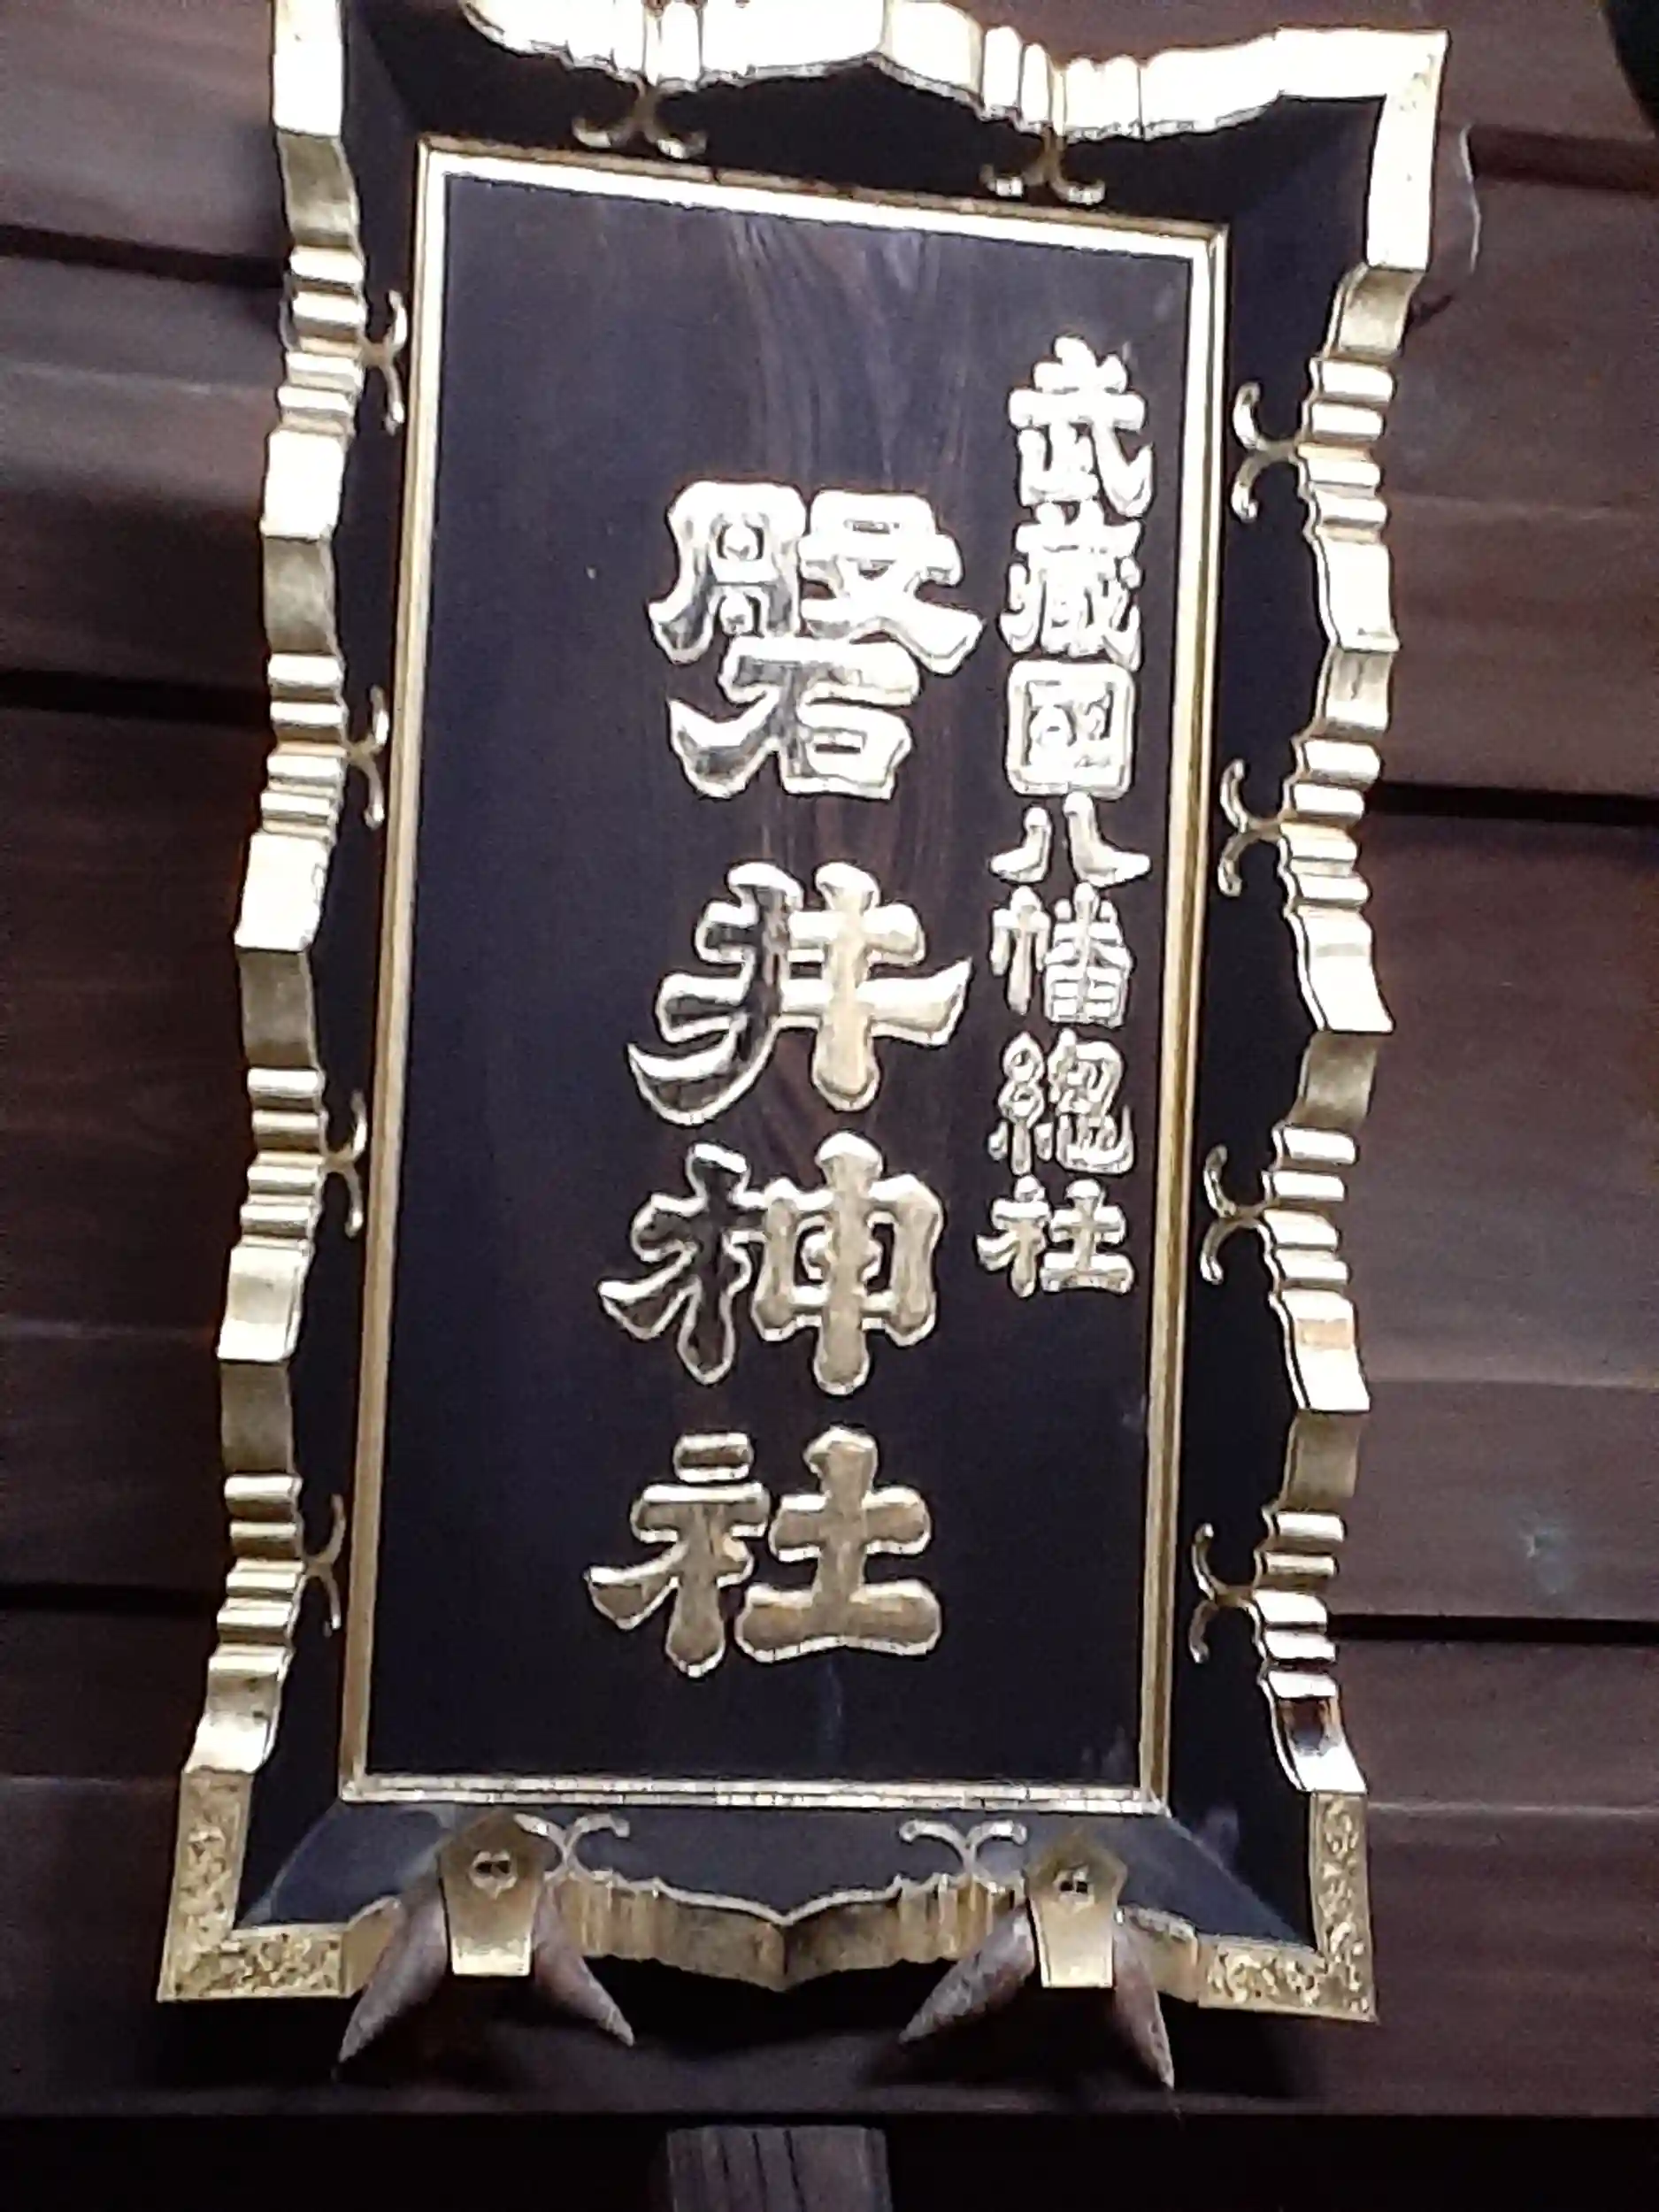 武藏國八幡總社
磐井神社